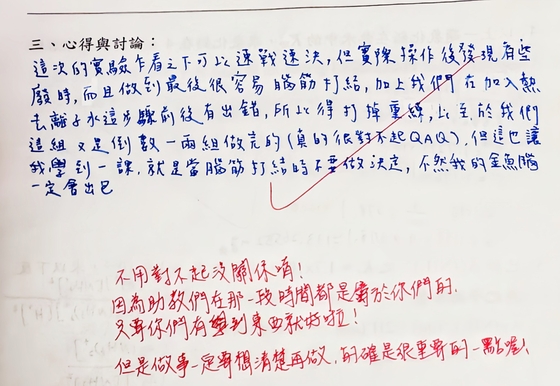 三、心得與討論：
這次的實驗乍看之下可以速戰速決，但實際操作後發現有些
廢時，而且做到最後很容易腦筋打結，加上我們在加入熱
去離子水這步驟前後有出錯，所以得打掉重練，以至於我們
這組又是倒數一兩組做完的(真的很對不起QAQ)，但這也讓
我學到一課，就是當腦筋打結時不要做決定，不然我的金魚腦
一定會出包
不用對不起沒關係唷！
因為助教們在那一段時間都是屬於你們的.
只要你們有學到東西就好啦！
但是做事一定要想清楚再做，的確是很重要的一點喔！